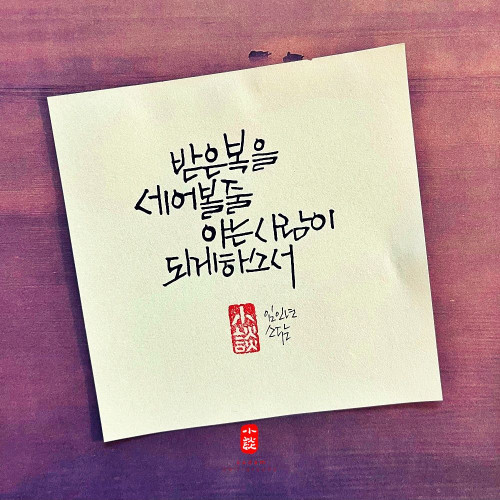 받은복을
세어볼줄
아는사람이
되게하소서
小談
임인년
소담
小談